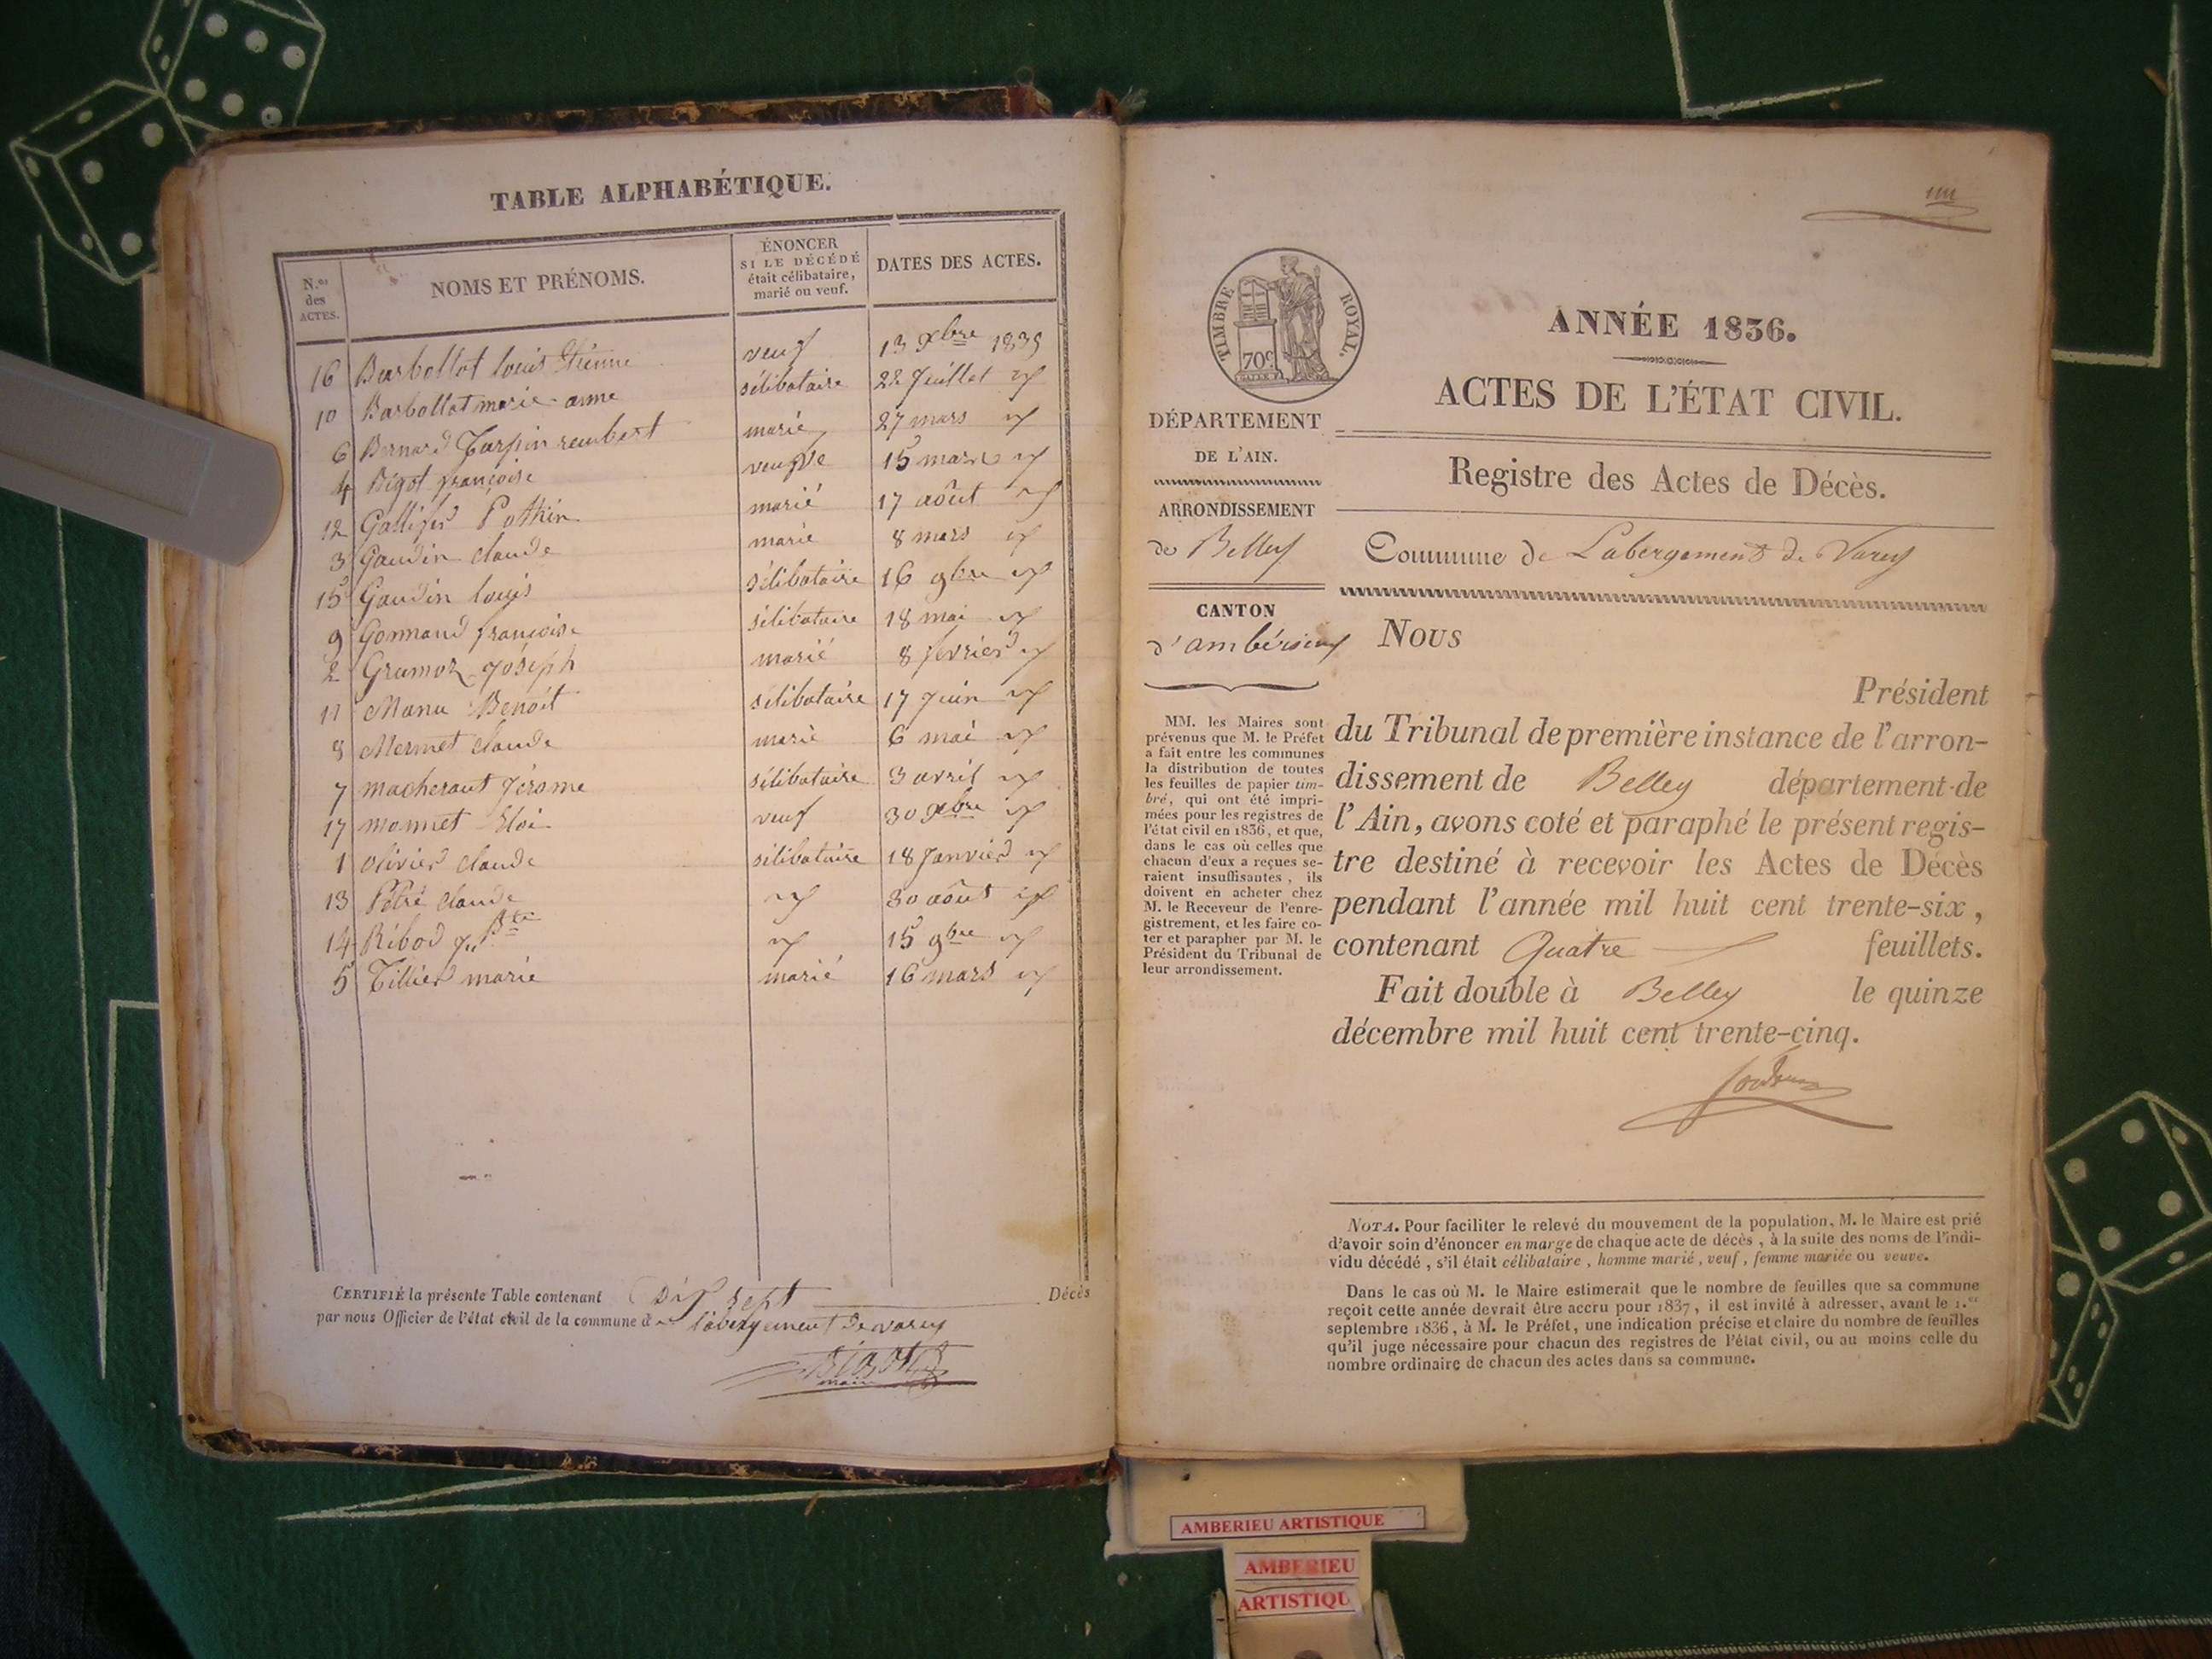 TABLE ALPHABÉTIQUE.
N.os des ACTES.
NOMS ET PRÉNOMS.
ÉNONCER
SI LE DÉCÉDÉ
était célibataire,
marié ou veuf.
DATES DES ACTES.
16 Barbollat louis Etienne veuf 13 xbre 1835
10 Barbollat marie-anne sélibataire 22 Juillet
6 Bernard rembert marié 27 mars
4 Bigot françoise 15 mars
12 Pothin marié 17 août
3 Gaudin claude marié 8 mars
15 Gaudin louis sélibataire 16 9bre
9 Gormand françoise sélibataire 18 mai
2 joseph marié 8 février
11 Benoit sélibataire 17 Juin
8 Mermet claude marié 6 mai
7 macheraut Jérome sélibataire 3 avril
17 monnet Eloi veuf 30 xbre
1 olivier claude sélibataire 18 Janvier
13 Pétré claude 30 août
14 Ribod 15 9bre
5 Tillier marie marié 16 mars
CERTIFIÉ la présente Table contenant Dix sept Décès
par nous Officier de l'état civil de la commune de l'abergement de varey
maire
TIMBRE ROYAL.
70c
ANNÉE 1836.
ACTES DE L'ÉTAT CIVIL.
Registre des Actes de Décès.
DÉPARTEMENT
DE L'AIN.
ARRONDISSEMENT
de Belley
CANTON
d'ambérieux
Commune de Labergement de Varey
Nous
Président
du Tribunal de première instance de l'arron-
dissement de Belley département de
l'Ain, avons coté et paraphé le présent regis-
tre destiné à recevoir les Actes de Décès
pendant l'année mil huit cent trente-six,
contenant Quatre feuillets.
Fait double à Belley le quinze
décembre mil huit cent trente-cinq.
MM. les Maires sont
prévenus que M. le Préfet
a fait entre les communes
la distribution de toutes
les feuilles de papier tim-
bré, qui ont été impri-
mées pour les registres de
l'état civil en 1836, et que,
dans le cas où celles que
chacun d'eux a reçues se-
raient insuffisantes, ils
doivent en acheter chez
M. le Receveur de l'enre-
gistrement, et les faire co-
ter et parapher par M. le
Président du Tribunal de
leur arrondissement.
NOTA. Pour faciliter le relevé du mouvement de la population, M. le Maire est prié
d'avoir soin d'énoncer en marge de chaque acte de décès, à la suite des noms de l'indi-
vidu décédé, s'il était célibataire, homme marié, veuf, femme mariée ou veuve.
Dans le cas où M. le Maire estimerait que le nombre de feuilles que sa commune
reçoit cette année devrait être accru pour 1837, il est invité à adresser, avant le 1.er
septembre 1836, à M. le Préfet, une indication précise et claire du nombre de feuilles
qu'il juge nécessaire pour chacun des registres de l'état civil, ou au moins celle du
nombre ordinaire de chacun des actes dans sa commune.
AMBERIEU ARTISTIQUE
AMBERIEU
ARTISTIQU